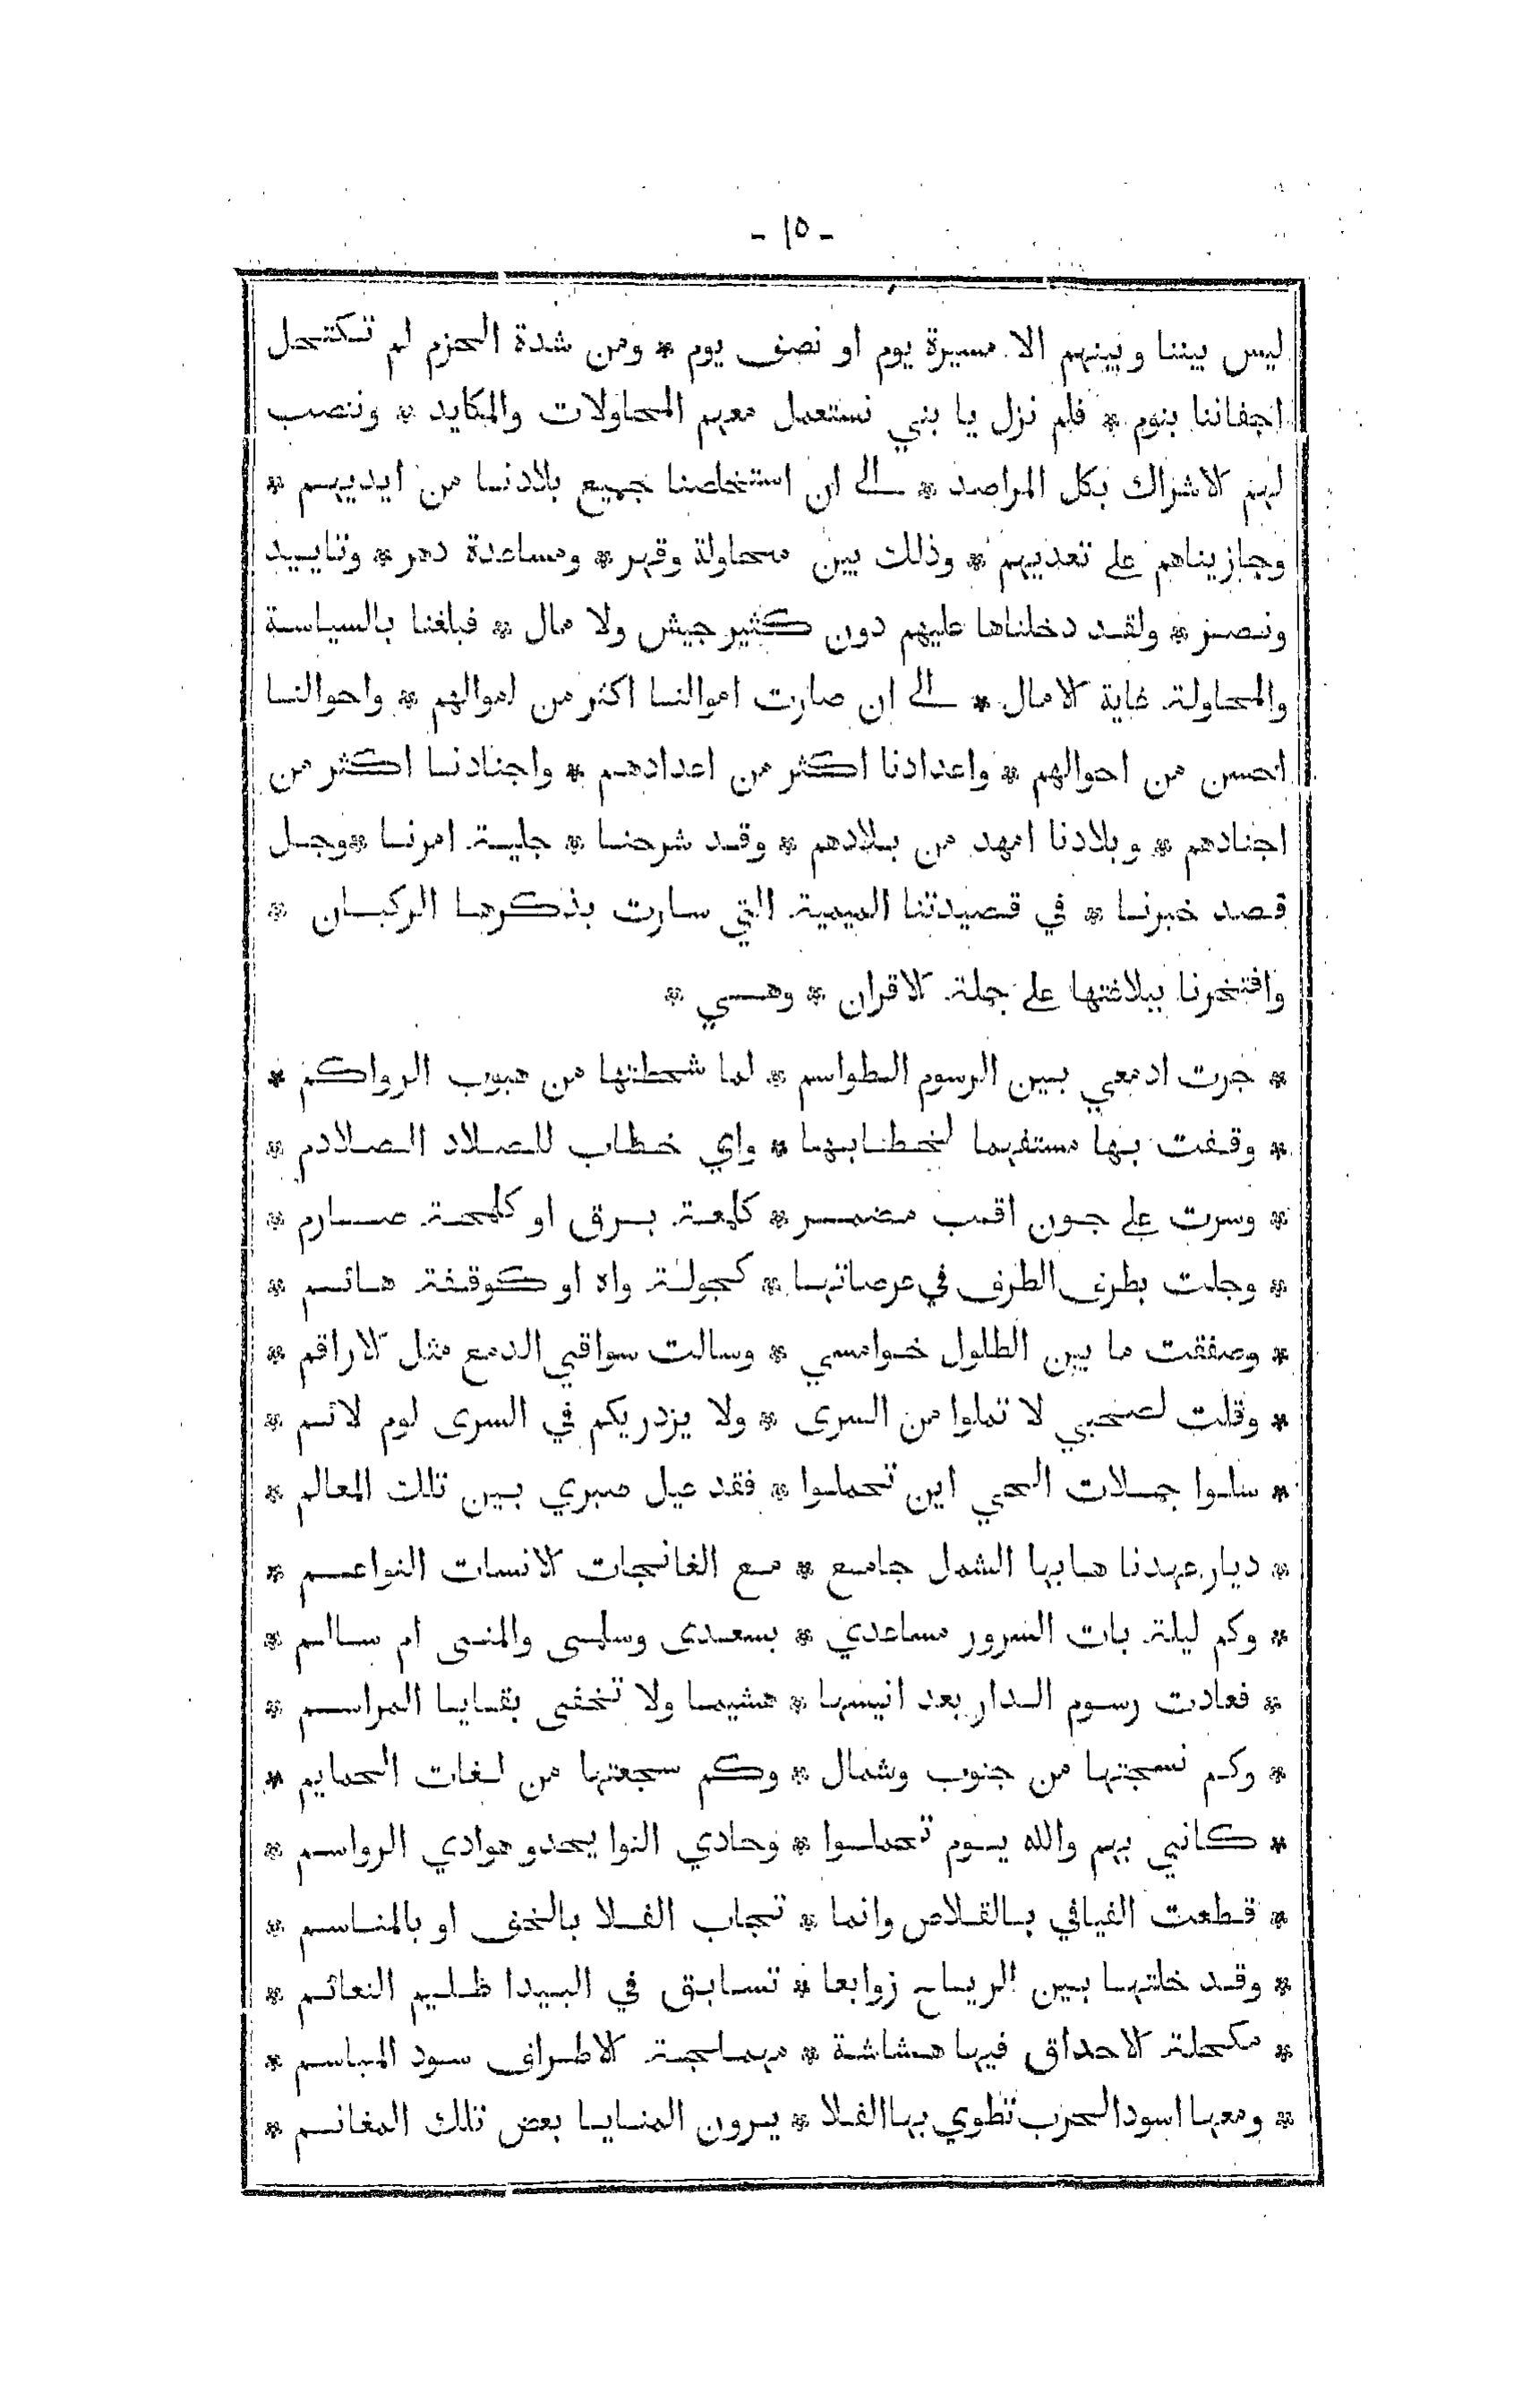 - ١٥ -
ليس بيننا وبينهم الا مسيرة يوم او نصف يوم * ومن شدة الحزم لم تكتحل
اجفاننا بنوم * فلم نزل يا بني نستعمل معهم المحاولات والمكايد * وننصب
لهم الاشراك بكل المراصد * الى ان استخلصنا جميع بلادنا من ايديهم *
وجازيناهم على تعديهم * وذلك بين محاولة وقهر * ومساعدة دهر * وتاييد
ونصر * ولقد دخلناها عليهم دون كثير جيش ولا مال * فبلغنا بالسياسة
والمحاولة غاية الامال * الى ان صارت اموالنا اكثر من اموالهم * واحوالنا
احسن من احوالهم * واعدادنا اكثر من اعدادهم * واجنادنا اكثر من
اجنادهم * وبلادنا امهد من بلادهم * وقد شرحنا * جلية امرنا * وجل
قصد خبرنا * في قصيدتنا الميمية التي سارت بذكرها الركبان *
وافتخرنا ببلاغتها على جملة الاقران * وهي *
* جرت ادمعي بين الرسوم الطواسم * لما شحطتها من هبوب الرواكم *
* وقفت بها مستفهما لخطابها * واي خطاب للصلاد الصلادم *
* وسرت على جون اقب مضمر * كلمعة برق او كلمحة صارم *
* وجلت بطرف الطرف في عرصاتها * كجولة واه او كوقفة هائم *
* وصفقت ما بين الطلول خوامسي * وسالت سواقي الدمع مثل الاراقم *
* وقلت لصحبي لا تملوا من السرى * ولا يزدريكم في السرى لوم لائم *
* سلوا جملات الحي اين تحملوا * فقد عيل صبري بين تلك المعالم *
* ديار عهدنا هابها الشمل جامع * مع الغانجات الانسات النواعم *
* وكم ليلة بات السرور مساعدي * بسعدى وسلمى والمنى ام سالم *
* فعادت رسوم الدار بعد انيسها * هشيما ولا تخفى بقايا المراسم *
* وكم نسجتها من جنوب وشمال * وكم سجعتها من لغات الحمايم *
* كاني بهم والله يوم تحملوا * وحادي النوا يحدو هوادي الرواسم *
* قطعت الفيافي بالقلاص وانما * تجاب الفلا بالخف او بالمناسم *
* وقد خلتها بين الرياح زوابعا * تسابق في البيدا ظليم النعائم *
* مكحلة الاحداق فيها هشاشة * مهملجة الاطراف سود المباسم *
* ومعها اسود الحرب تطوي بها الفلا * يرون المنايا بعض تلك المغانم *